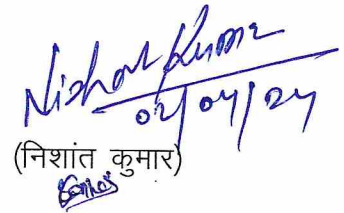 Nishant Kumar
02/04/24
(निशांत कुमार)